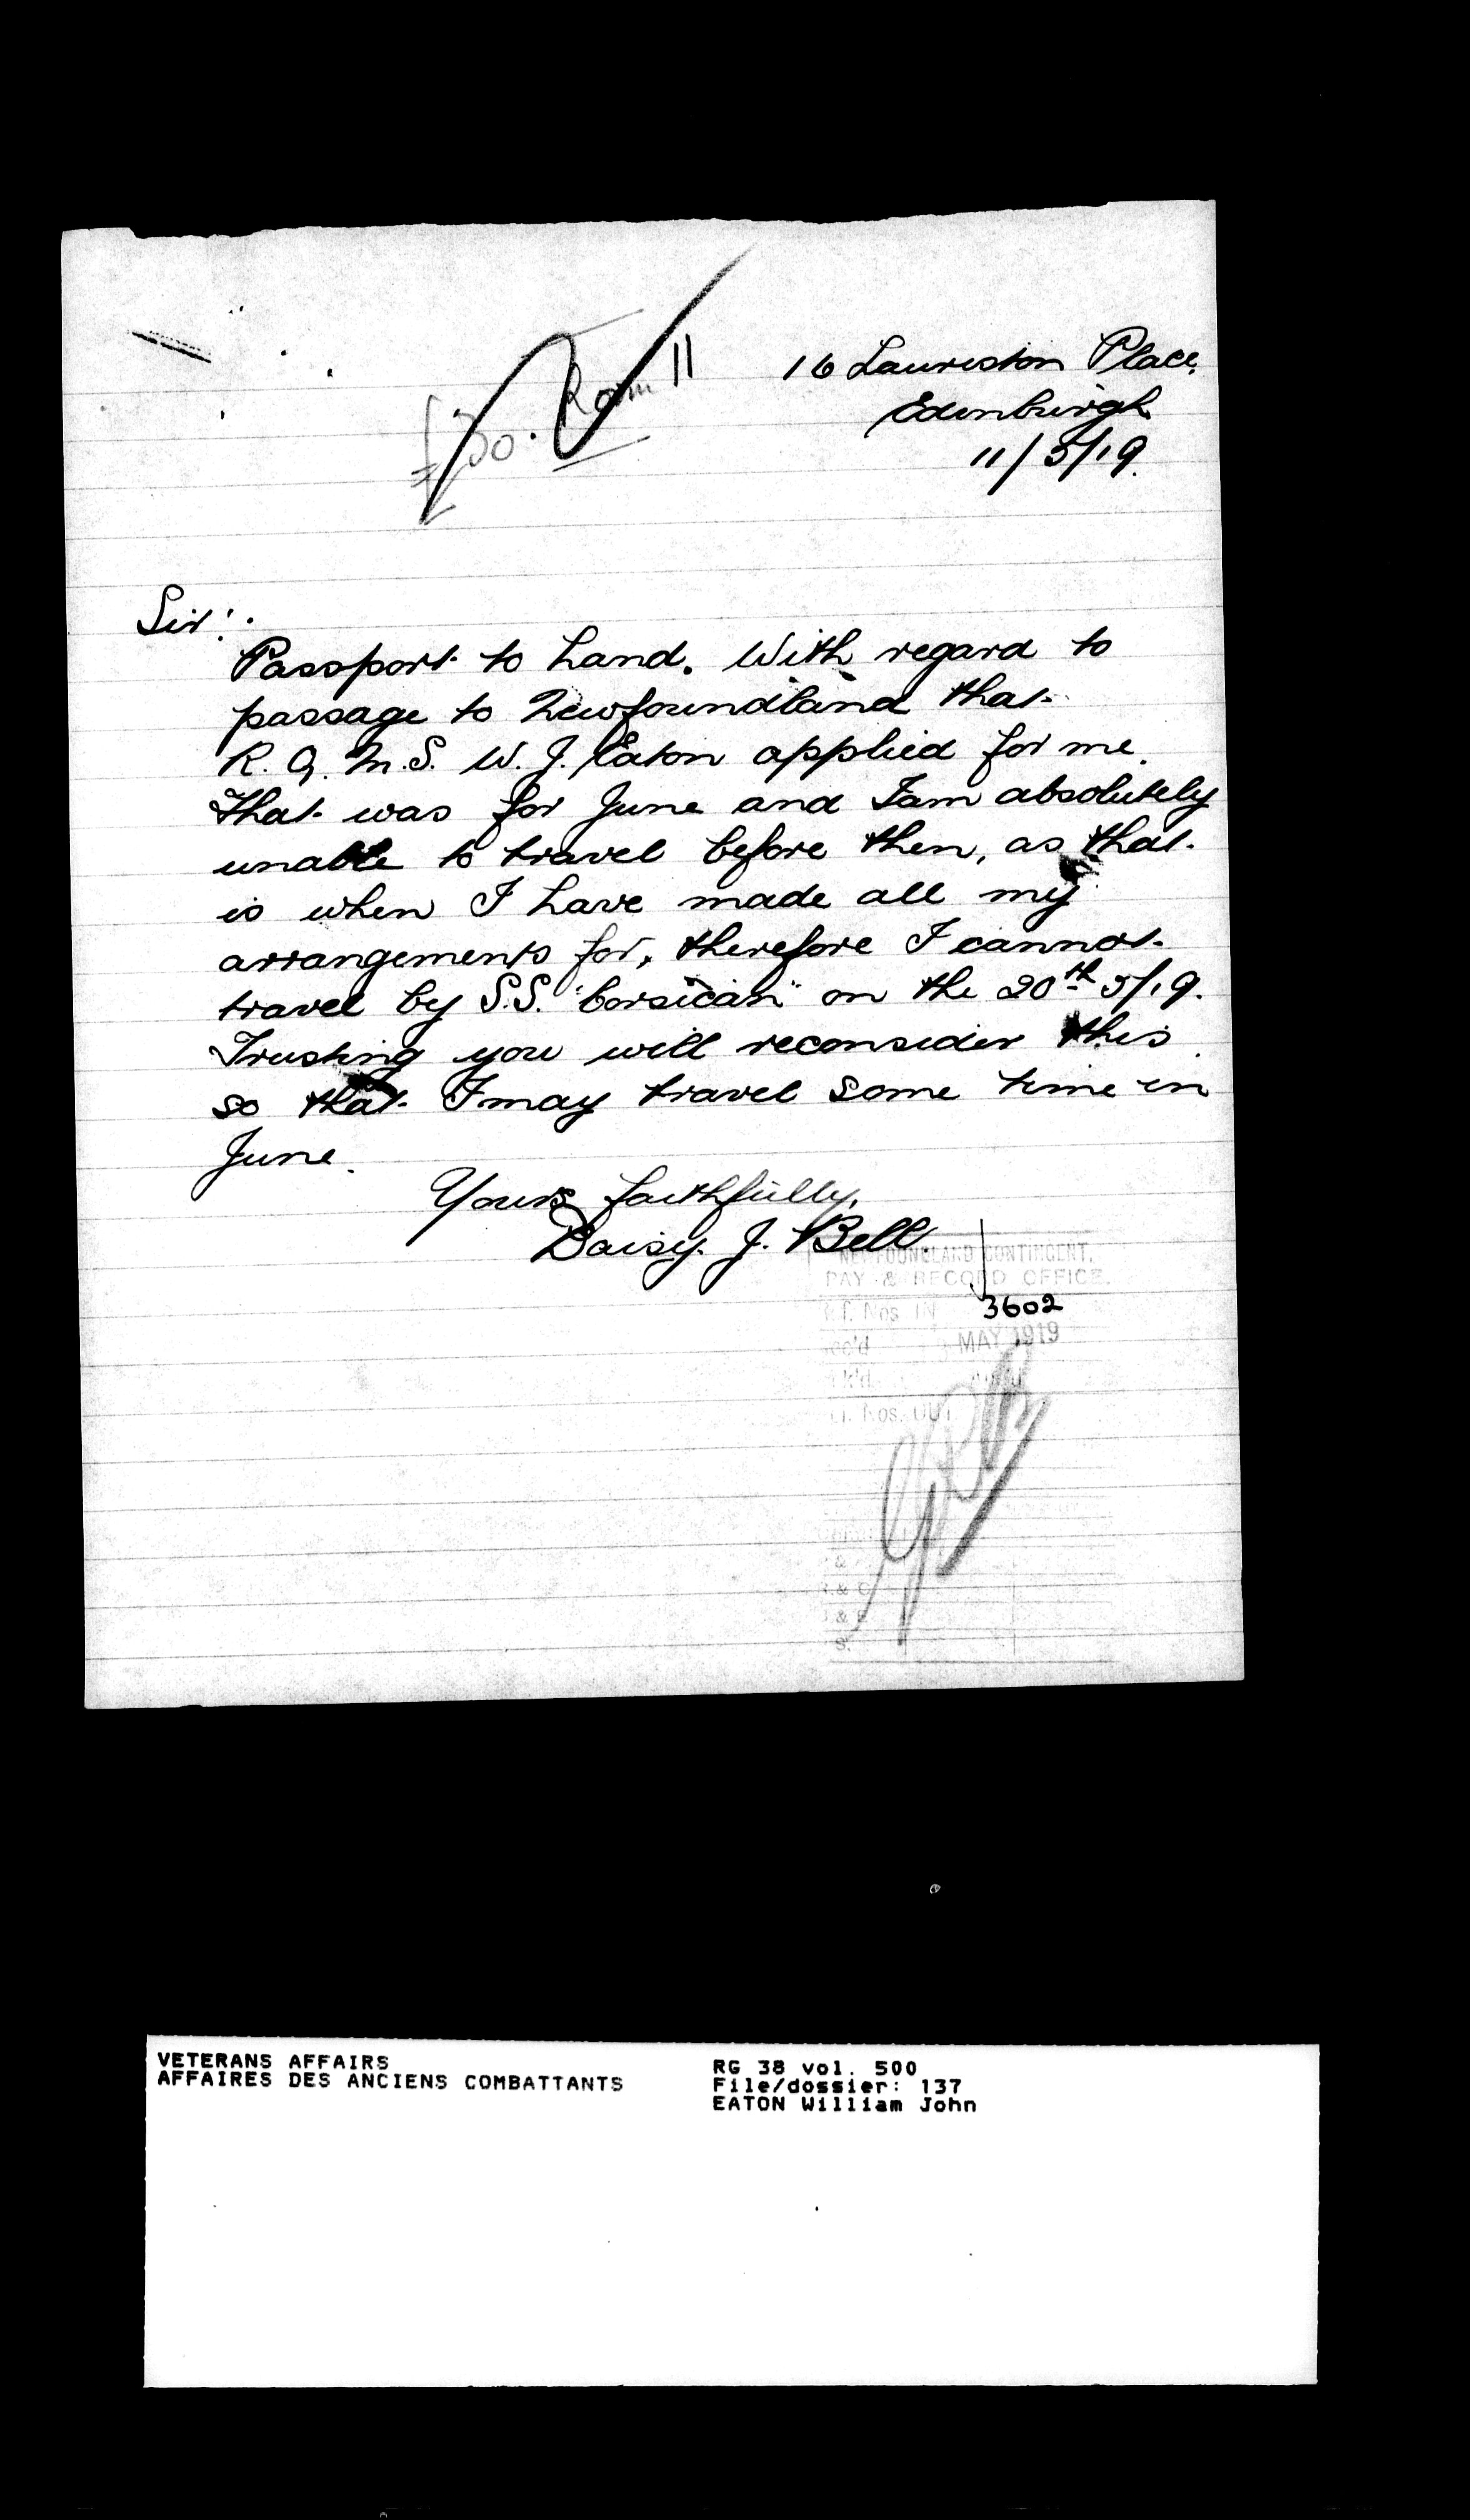 Room 11
16 Lauriston Place,
Edinburgh
11/5/19.
Sir:.
Passport to hand. With regard to
passage to Newfoundland that
R.Q.M.S. W. J. Eaton applied for me.
That was for June and I am absolutely
unable to travel before then, as that
is when I have made all my
arrangements for, therefore I cannot
travel by S.S. "Corsican" on the 20th 5/19.
Trusting you will reconsider this
so that I may travel some time in
June.
Yours faithfully,
Daisy. J. Bell
NEWFOUNDLAND CONTINGENT,
PAY & RECORD OFFICE.
Nos IN 3602
MAY 1919
Nos. OUT
VETERANS AFFAIRS
AFFAIRES DES ANCIENS COMBATTANTS
RG 38 vol. 500
File/dossier: 137
EATON William John